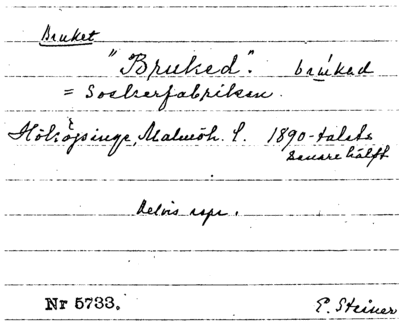 Bruket
"Bruked". brúkad
= Sockerfabriken.
Hököpinge, Malmöh. l. 1890-talets
senare hälft
Delvis rspr.
Nr 5733.
E. Steiner